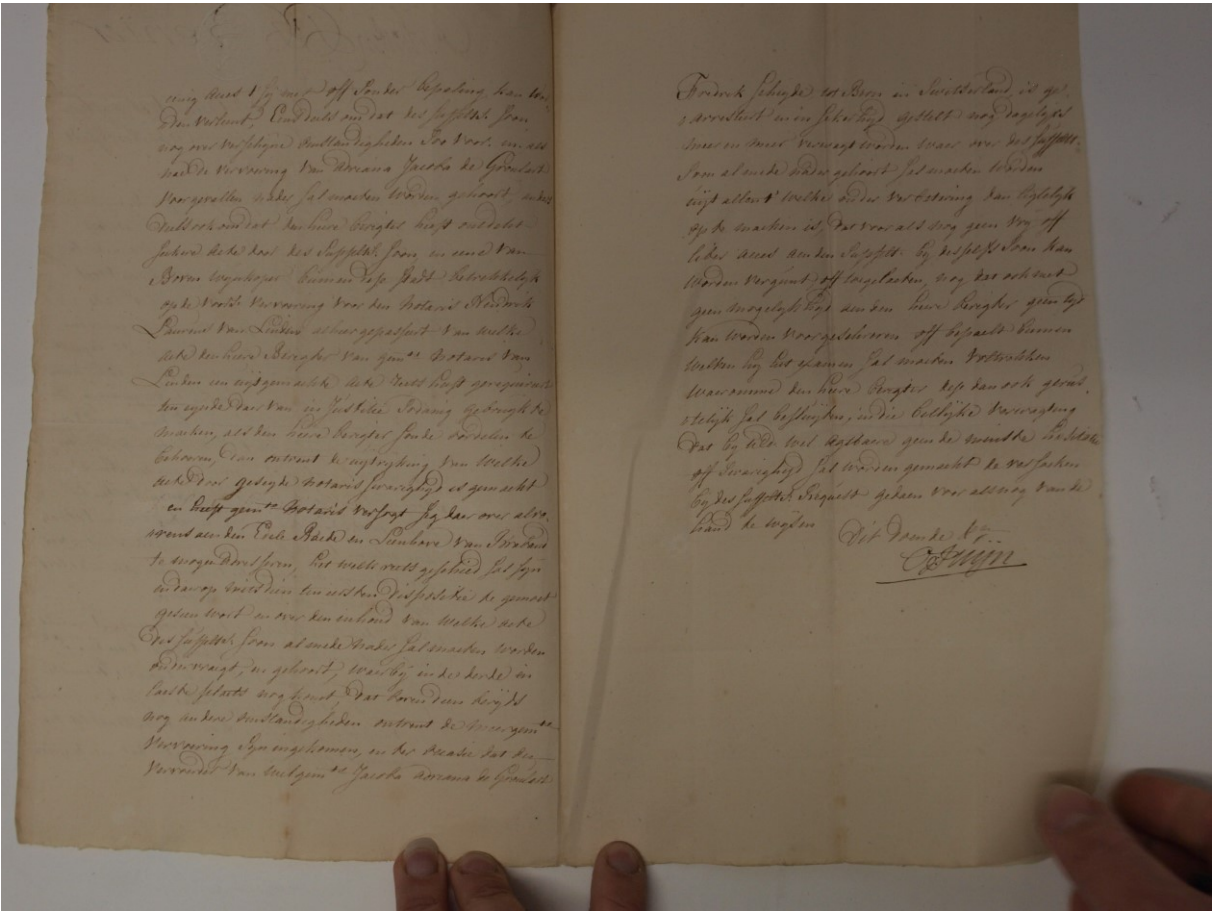 eenig acces 't sij met off sonder bepaling kan wor-
den verleent, Eensdeels om dat des supplts. soon
nog over verscheijde omstandigheden soo voor- in als
naer de vervoering van Adriana Jacoba de Groulart
voorgevallen nader sal moeten worden gehoort, anders
deels ook om dat den heere berigter heeft ontdekt
seekere acte door des supplts. soon, en eene van
Boven wijnkoper binnen dese stadt betrekkelijk
op de voors. vervoering voor den Notaris Hendrik
Laurens van Linden alhier gepasseert van welke
acte den heere Berigter van gemte. Notaris van
Linden een uijtgemaekte acte heeft gerequireert
ten eynde daer van in Justitie sodanig gebruyk te
maeken, als den heere berigter soude oordeelen te
behooren, dan ontrent de uytrijking van welke
acte door geseyde notaris swarigheijd is gemaekt
en heeft gemte. Notaris versogt sig daer over alvo-
rens aen den Eedele Raede en Leenhove van Braband
te mogen adresseren, het welk reets geschied sal sijn
en daer op mitsdien ten eersten dispositie te gemoet
gesien wort en over den inhoud van welke acte
des supplts. soon al mede nader sal moeten worden
ondervraegt, en gehoort, waer bij in de derde en
laeste plaets nog komt, dat boven dien bereyds
nog andere omstandigheden ontrent de meergemte.
vervoering sijn ingekomen, en der decasie dat den
vervoerder van welgemte. Jacoba Adriana de Groulart
Fredrik Scheyde tot Bern in Switserland is ge-
arresteert en in sekerheyd gestelt nog dagelijx
meer en meer verwagt worden waer over des supplts.
soon al mede nader gehoort sal moeten worden
uijt allen 't welke onder verbetering dan ligtelijk
op te maeken is, dat voor als nog geen vrij off
liber acces aen den supplt. bij desselfs soon kan
worden vergunt off toegelaeten, nog dat ook met
geen mogelijkheyd aen den heere berigter geen tijd
kan worden voorgeschreven off bepaelt binnen
welken hij het examen sal moeten voltrekken
waeromme den heere berigter dese dan ook gerus-
telijk sal besluyten, in die billijke verwagting
dat bij UEd wel agtbaere geen de minste
off swarigheyd sal worden gemaekt de versoeken
bij des supplts. Request gedaen voor als nog van de
hand te wysen
Dit doende &a.